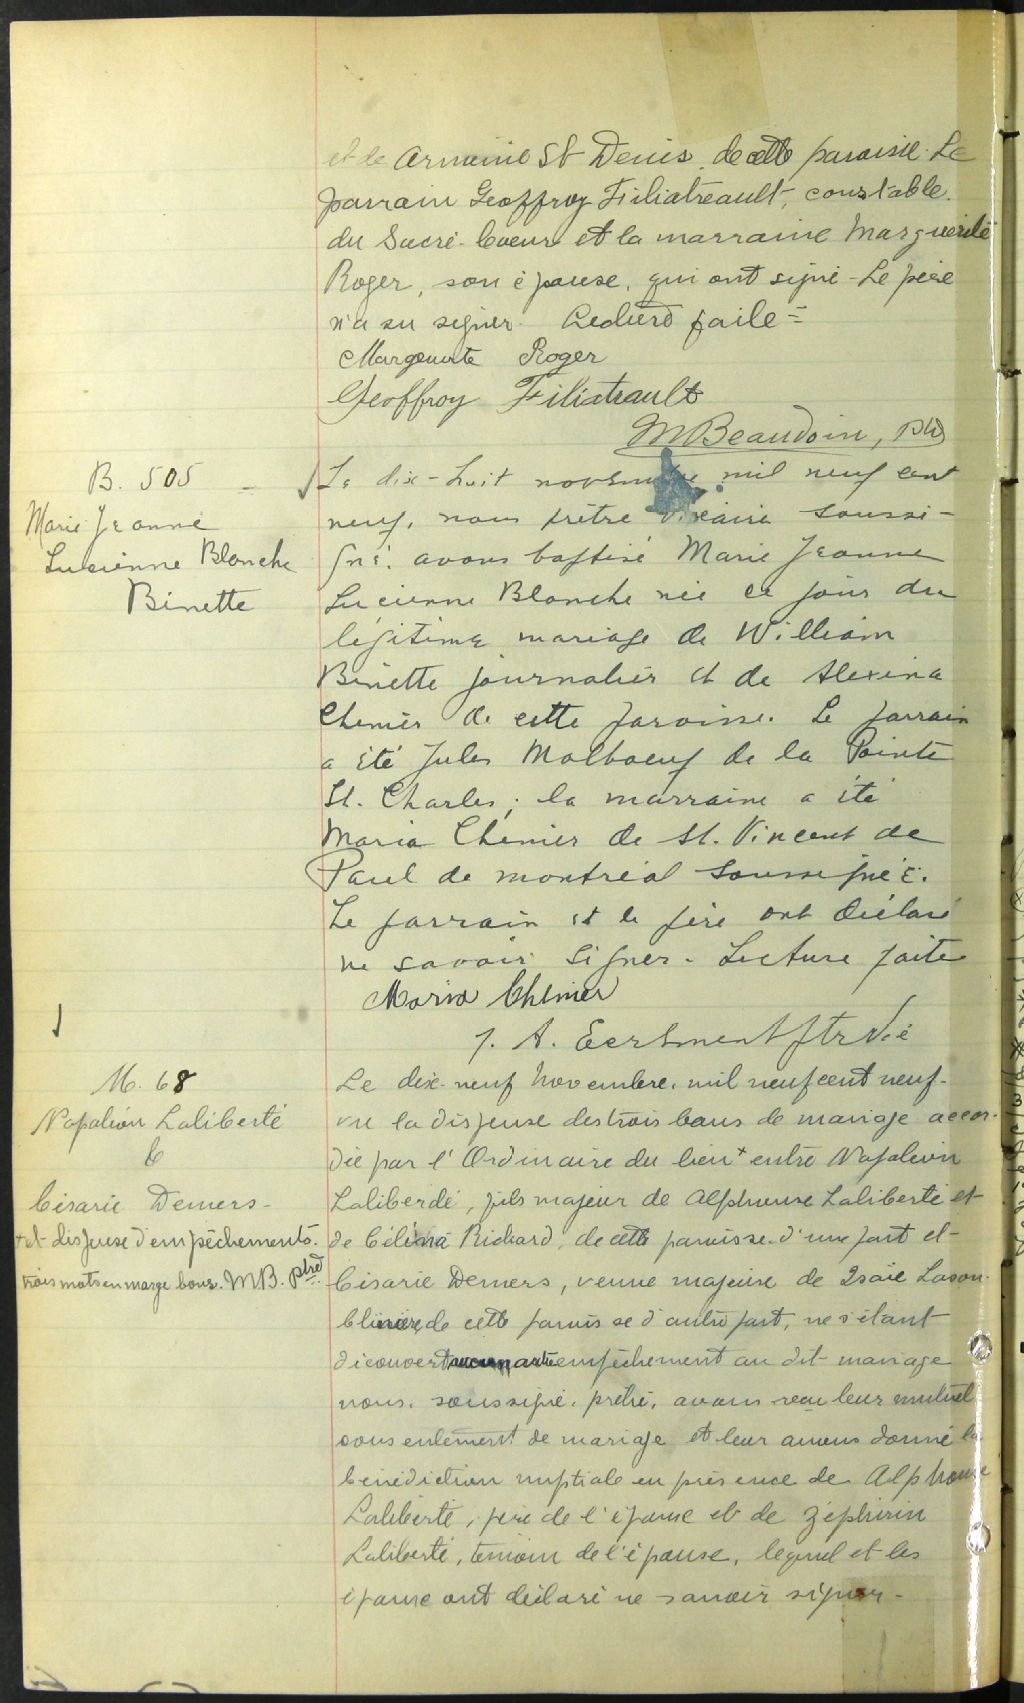 et de Arménie St Denis, de cette paroisse. Le
parrain Geoffroy Filiatreault, constable.
du Sacré-Coeur et la marraine Marguerite
Roger, son épouse, qui ont signé - Le père
n'a su signer. Lecture faite =
Marguerite Roger
Geoffroy Filiatrault
M Beaudoin, ptre
B. 505
Marie Jeanne
Lucienne Blanche
Binette
Le dix-huit novembre mil neuf cent
neuf, nous prêtre vicaire soussi-
gné, avons baptisé Marie Jeanne
Lucienne Blanche née ce jour du
légitime mariage de William
Binette journalier et de Alexina
Chenier de cette paroisse. Le parrain
a été Jules Malboeuf de la Pointe
St. Charles; la marraine a été
Maria Chenier de St. Vincent de
Paul de Montréal soussignée.
Le parrain et le père ont déclaré
ne savoir signer - Lecture faite
Maria Chenier
J. A. ptre Vic
M. 68
Napoléon Laliberté
&
Césarie Demers -
+ et dispense d'empêchements.
trois mots en marge bons. M.B. ptre
Le dix-neuf Novembre, mil neuf cent neuf -
vu la dispense des trois bans de mariage accor-
dée par l'Ordinaire du lieu + entre Napoléon
Laliberdé, fils majeur de Alphonse Laliberté et
de Célina Richard, de cette paroisse d'une part et -
Césarie Demers, veuve majeure de Isaïe
de cette paroisse d'autre part, ne s'étant
découvert aucun autre empêchement au dit mariage
nous, soussigné, prêtre, avons reçu leur mutuel
consentement de mariage et leur avons donné la
bénédiction nuptiale en présence de Alphonse
Laliberté, père de l'époux et de Zéphirin
Laliberté, témoin de l'épouse, lequel et les
époux ont déclaré ne savoir signer -